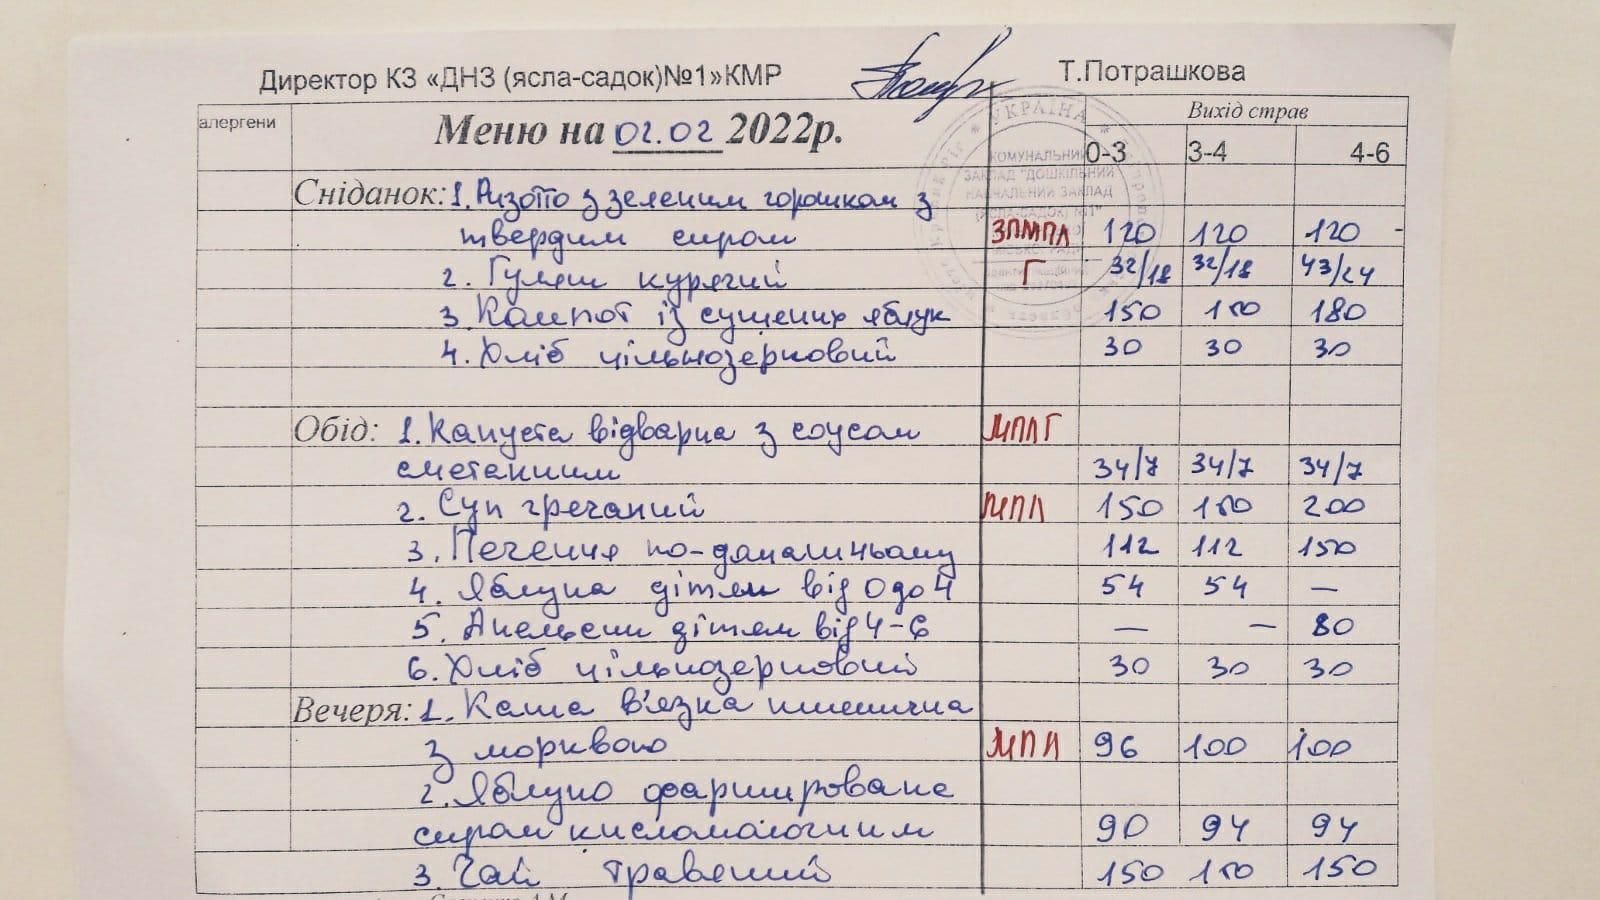 Директор КЗ «ДНЗ (ясла-садок)№1»КМР Т.Потрашкова
алергени Меню на 02.02 2022р. Вихід страв
0-3 3-4 4-6
Сніданок: 1. Ризотто з зеленим горошком з
твердим сиром ЗПМПЛ 120 120 120
2. Гуляш курячий Г 32/18 32/18 43/24
3. Компот із сушених яблук 150 150 180
4. Хліб цільнозерновий 30 30 30
Обід: 1. Капуста відварна з соусом МПЛГ
сметанним 34/7 34/7 34/7
2. Суп гречаний МПЛ 150 150 200
3. Печеня по-домашньому 112 112 150
4. Яблука дітям від 0 до 4 54 54 —
5. Апельсин дітям від 4-6 — — 80
6. Хліб цільнозерновий 30 30 30
Вечеря: 1. Каша в'язка пшенична
з морквою МПЛ 96 100 100
2. Яблуко фаршироване
сиром кисломолочним 90 94 94
3. Чай трав'яний 150 150 150
УКРАЇНА
КОМУНАЛЬНИЙ
ЗАКЛАД "ДОШКІЛЬНИЙ
НАВЧАЛЬНИЙ ЗАКЛАД
(ЯСЛА-САДОК) №1"